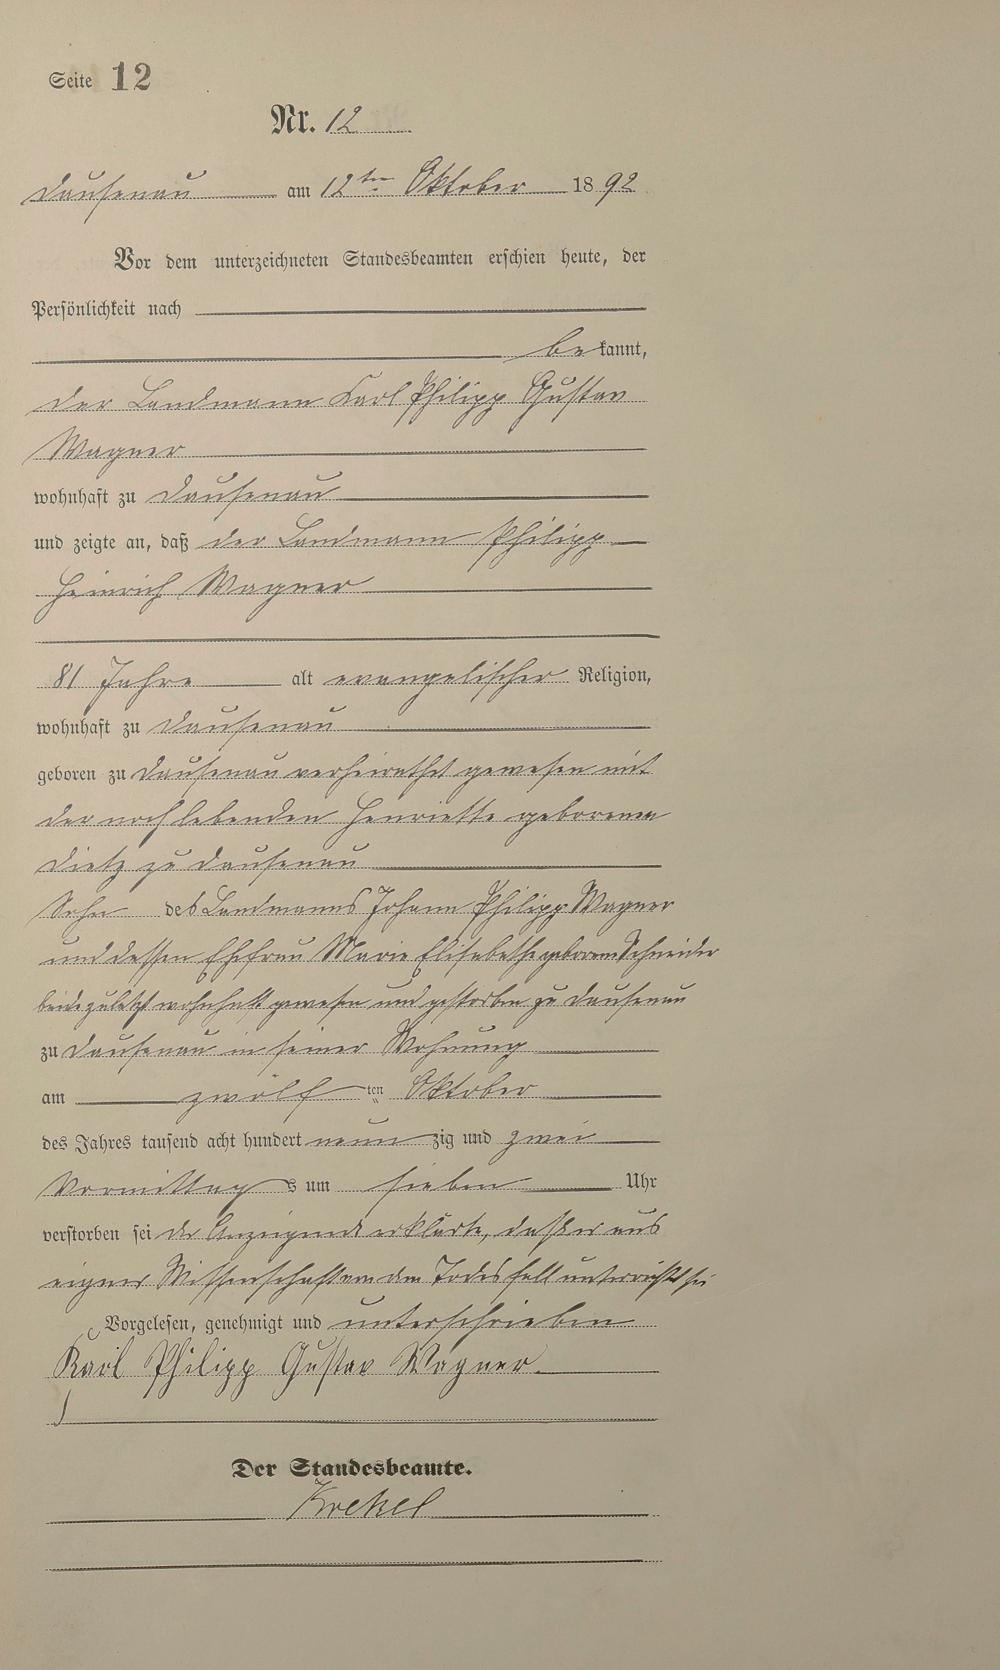 Seite 12
Nr. 12
Dausenau am 12ten Oktober 1892
Vor dem unterzeichneten Standesbeamten erschien heute, der
Persönlichkeit nach
bekannt,
der Landmann Karl Philipp Gustav
Wagner
wohnhaft zu Dausenau
und zeigte an, daß der Landmann Philipp
Heinrich Wagner
81 Jahre alt evangelischer Religion,
wohnhaft zu Dausenau
geboren zu Dausenau verheirathet gewesen mit
der noch lebenden Henriette geborenen
Dietz zu Dausenau
Sohn des Landmanns Johann Philipp Wagner
und dessen Ehefrau Marie Elisabethe geborene Schneider
beide zuletzt wohnhaft gewesen und gestorben zu Dausenau
zu Dausenau in seiner Wohnung
am zwölften Oktober
des Jahres tausend acht hundert neunzig und zwei
Vormittags um sieben Uhr
verstorben sei der Anzeigende erklärte, daß er aus
eigner Wissenschaft von dem Todesfall unterrichtet sei
Vorgelesen, genehmigt und unterschrieben
Karl Philipp Gustav Wagner.
Der Standesbeamte.
Krekel